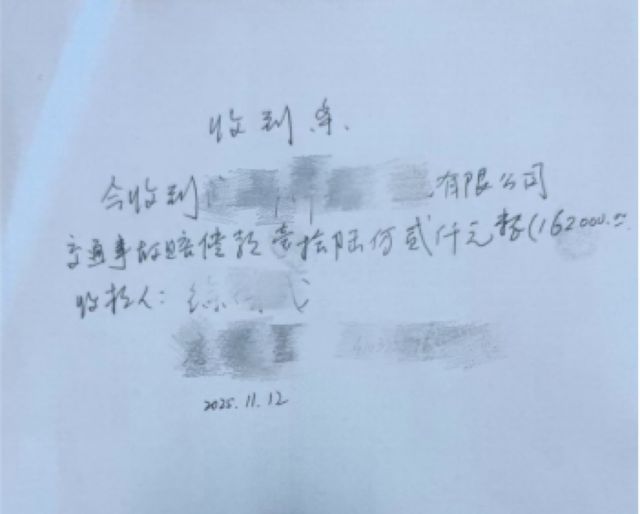 收到条
今收到 有限公司
交通事故赔偿款壹拾陆万贰仟元整(162000.00
收款人：
2025.11.12